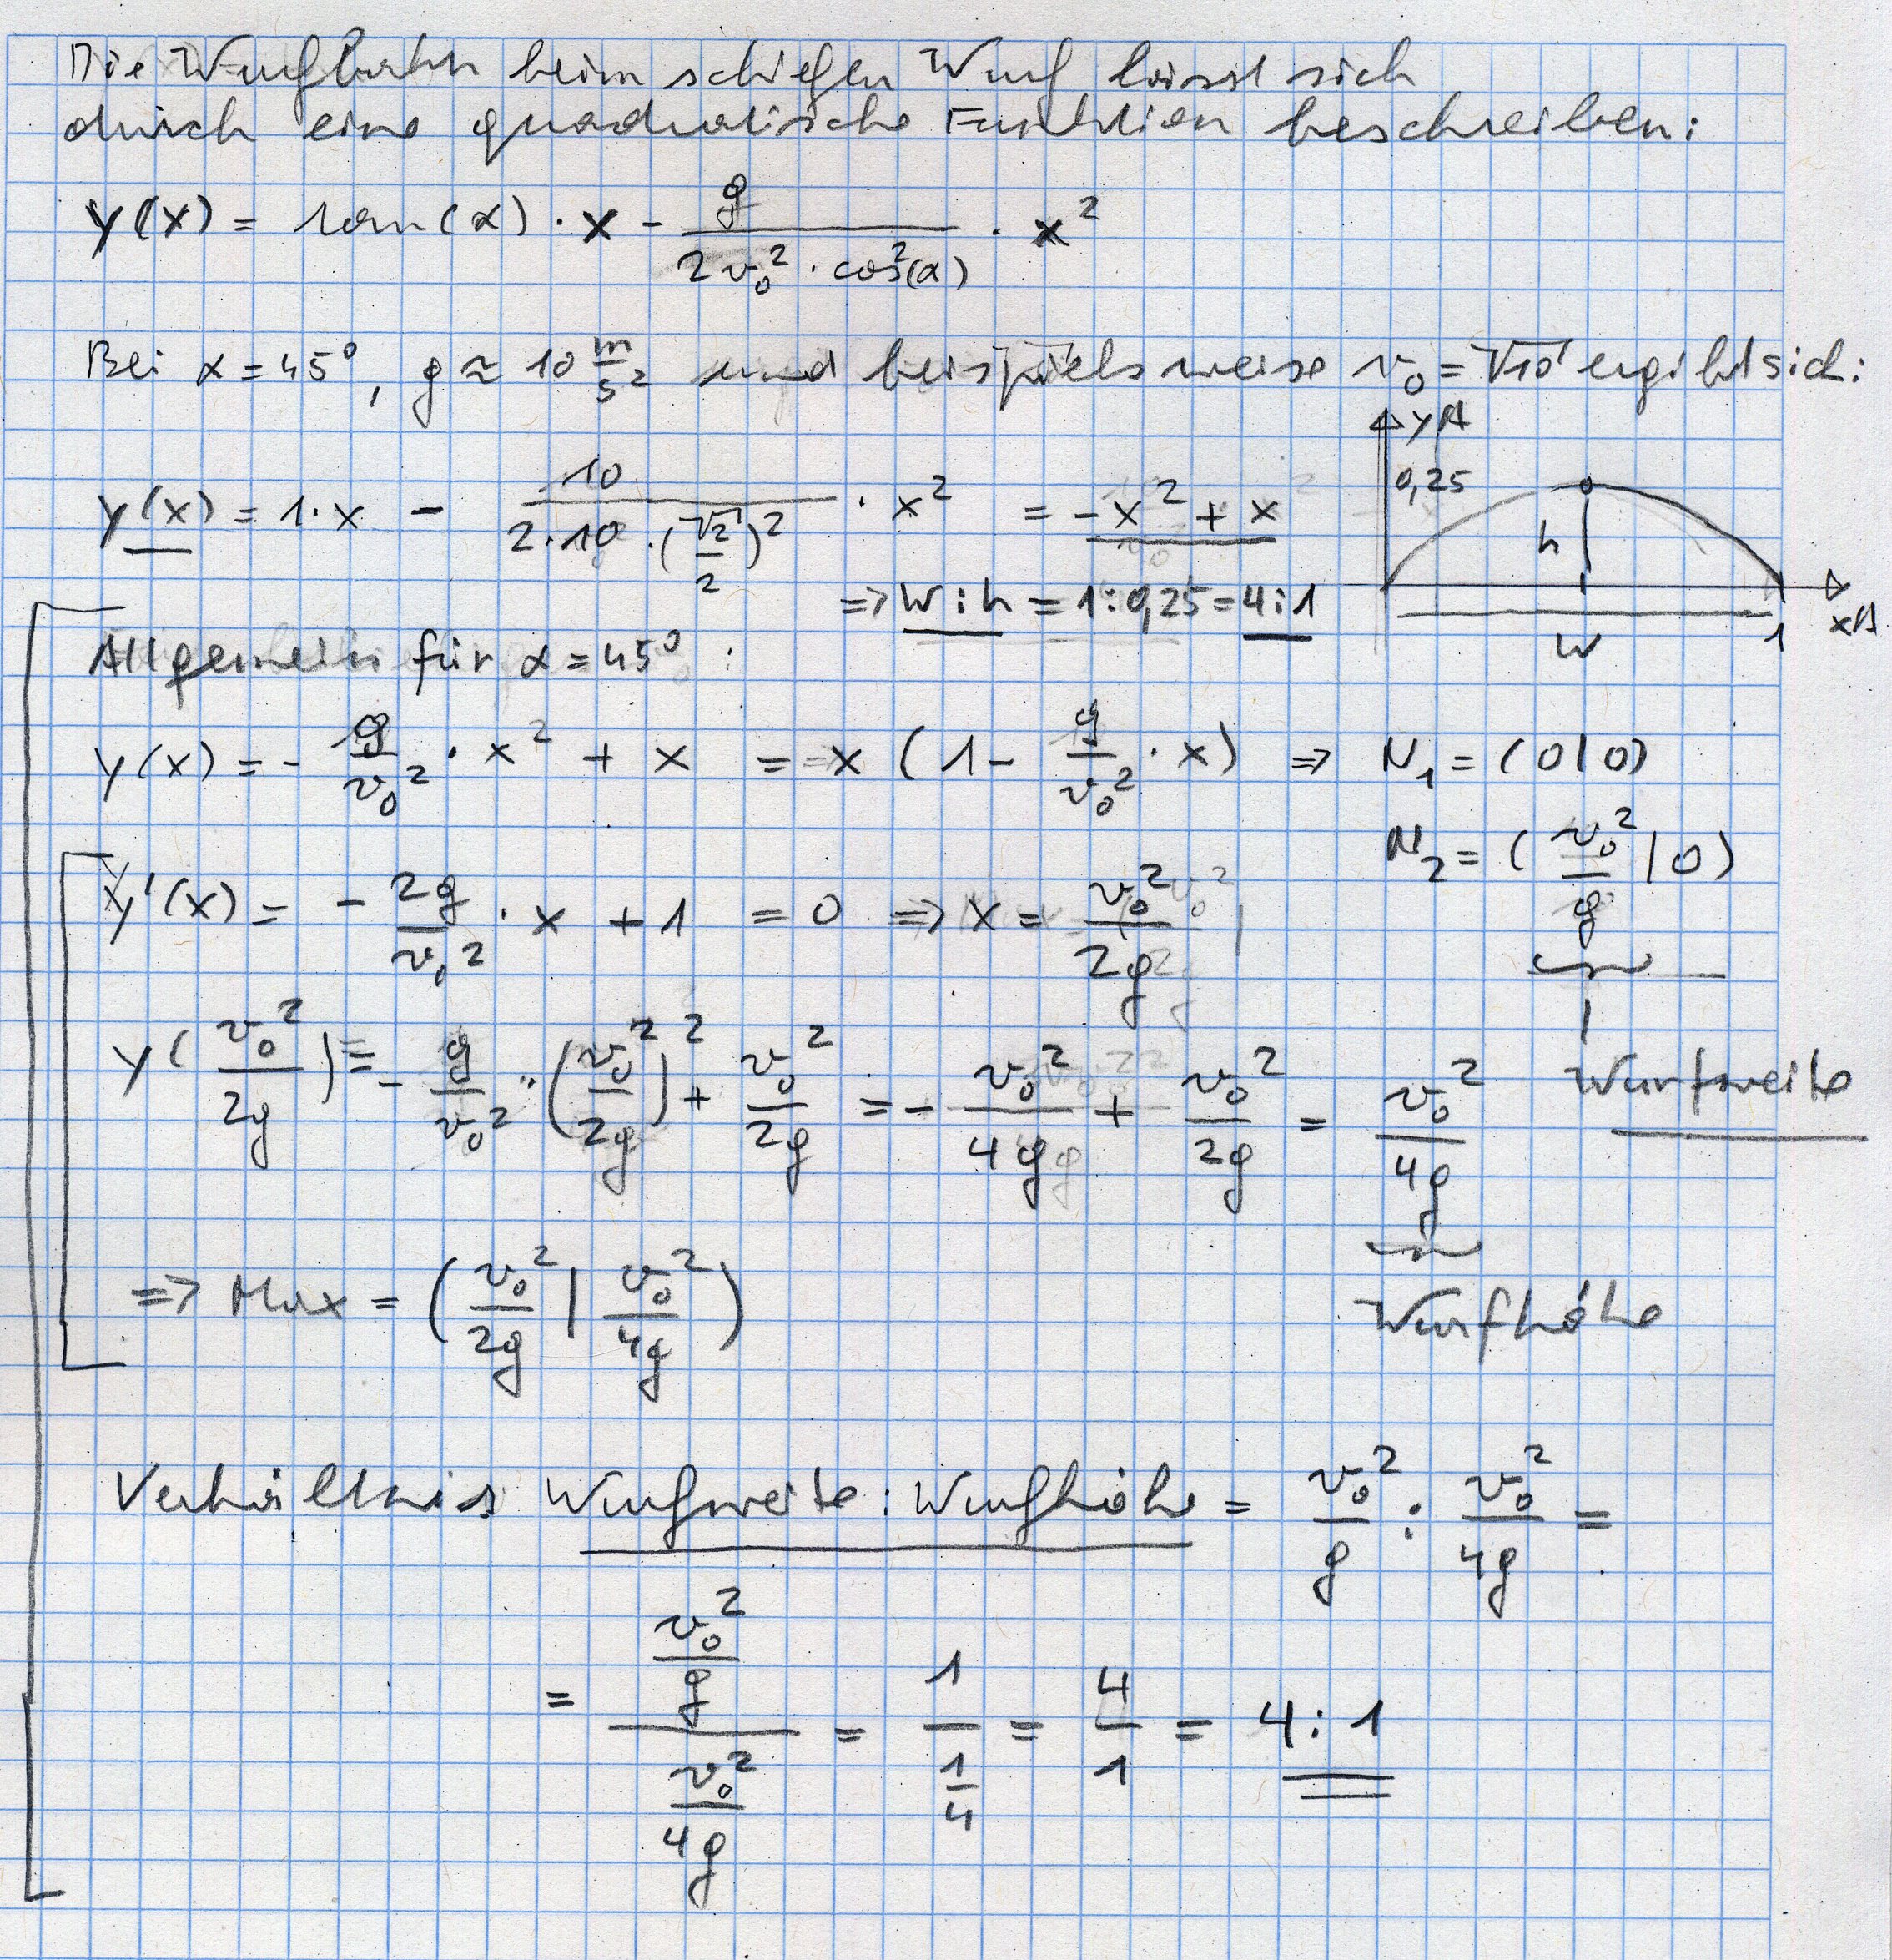 Die Wurfbahn beim schiefen Wurf lässt sich
durch eine quadratische Funktion beschreiben:
y(x) = tan(α) · x - g / (2v₀² · cos²(α)) · x²
Bei α = 45°, g ≈ 10 m/s² und beispielsweise v₀ = √10 ergibt sich:
y(x) = 1·x - 10 / (2·10·(√2/2)²) · x² = -x² + x
y
0,25
h
W
1
x
=> W:h = 1:0,25 = 4:1
Allgemein für α = 45° :
y(x) = - g/v₀² · x² + x = x (1 - g/v₀² · x) => N₁ = (0|0)
N₂ = (v₀²/g | 0)
Wurfweite
y'(x) = - 2g/v₀² · x + 1 = 0 => x = v₀²/2g
y(v₀²/2g) = - g/v₀² · (v₀²/2g)² + v₀²/2g = - v₀²/4g + v₀²/2g = v₀²/4g
Wurfhöhe
=> Max = (v₀²/2g | v₀²/4g)
Verhältnis Wurfweite : Wurfhöhe = v₀²/g : v₀²/4g =
= (v₀²/g) / (v₀²/4g) = 1 / (1/4) = 4/1 = 4 : 1